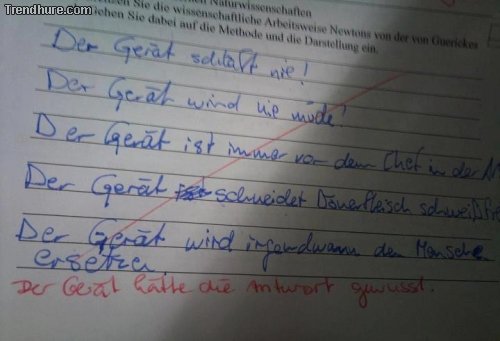 Trendhure.com
Naturwissenschaften
Sie die wissenschaftliche Arbeitsweise Newtons von der von Guerickes
Sie dabei auf die Methode und die Darstellung ein.
Der Gerät schläft nie!
Der Gerät wird nie müde!
Der Gerät ist immer vor dem Chef in der
Der Gerät schneidet Dönerfleisch
Der Gerät wird irgendwann den Mensche
ersetzen
Der Gerät hätte die Antwort gewusst.